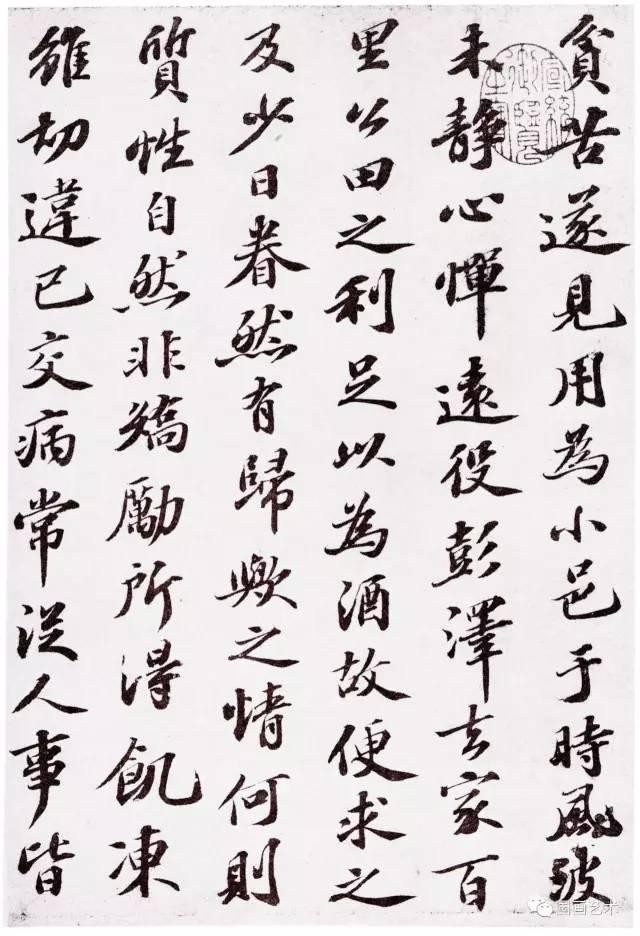 貧苦遂見用為小邑于時風波
未靜心憚遠役彭澤去家百
里公田之利足以為酒故便求之
及少日眷然有歸歟之情何則
質性自然非矯勵所得飢凍
雖切違己交病常從人事皆
宣統御覽之寶
国画艺术